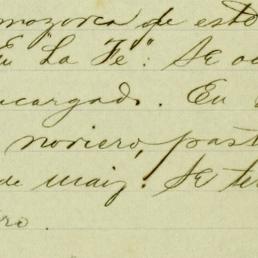 mazorca de esto
En "La Fé": Se oc
ncargado. En
noriero, past
de maiz. Se ter
ro.